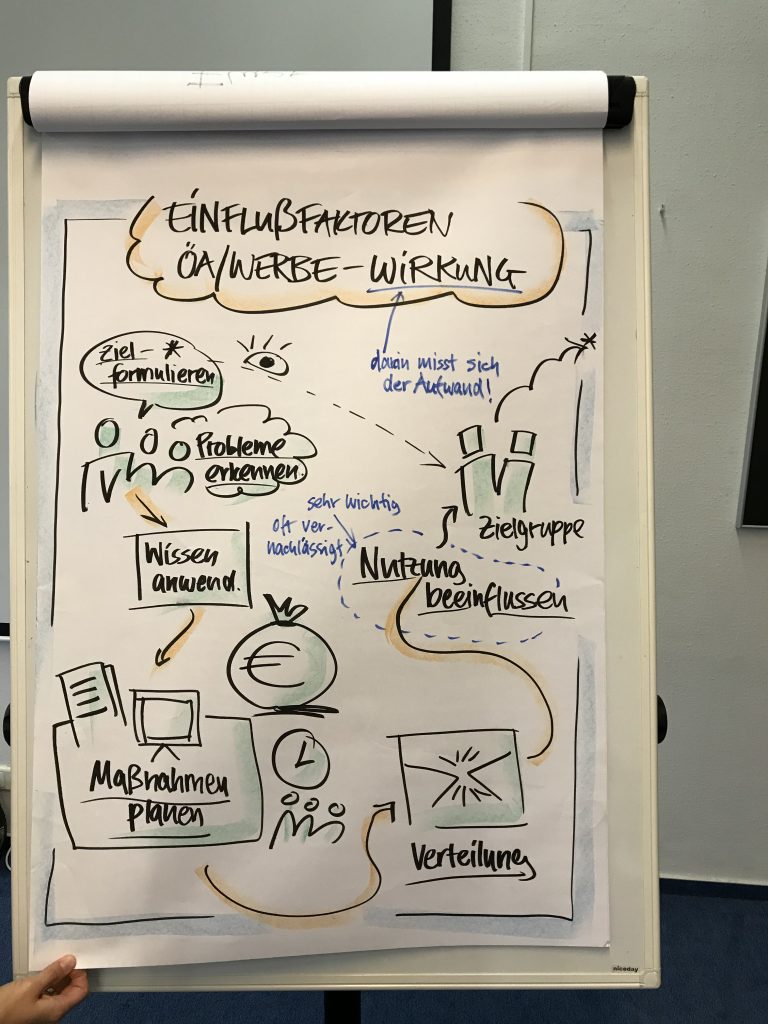 EINFLUßFAKTOREN
ÖA/WERBE-WIRKUNG
daran misst sich
der Aufwand!
Ziel- *
formulieren
Probleme
erkennen.
Wissen
anwend.
€
Maßnahmen
planen
Verteilung
sehr wichtig
oft ver-
nachlässigt
Nutzung
beeinflussen
Zielgruppe
niceday